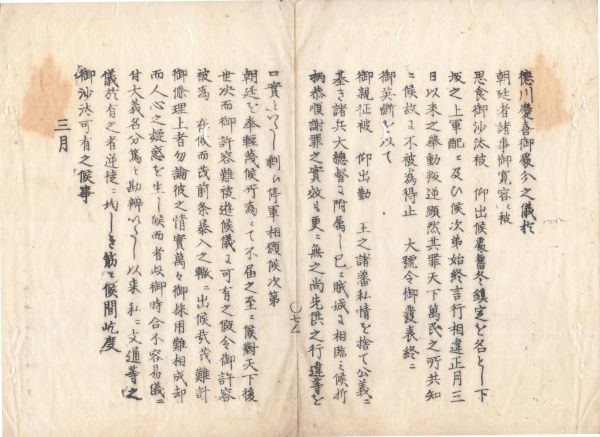 徳川慶喜御處分之儀於
朝廷者諸事御寛容ニ被
思食御沙汰被　仰出候處舊冬鎮定を名とし下
坂之上軍配ニ及ひ候次第始終言行相違正月三
日以来之挙動叛逆顕然其罪天下萬民之所共知
ニ候故ニ不被為得止　大號令御發表終ニ
御英断を以て
御親征被　仰出勤　王之諸藩私情を捨て公義ニ
基き諸兵大總督ニ附属し已ニ賊城ニ相臨ミ候折
柄恭順謝罪之實效も更ニ無之尚先供之行違等を
口實といたし剰ヘ停軍相願候次第
朝廷を奉輕蔑候所為ニて不届之至ニ候對天下後
世決而御許容難被遊候儀ニ可有之假令御許容
被為　在候而茂前条暴入之轍ニ出候哉茂難計
御條理上者勿論彼之情實萬々御採用難相成却
而人心之疑惑を生し候而者此御時合不容易儀ニ
付大義名分篤と勘辨いたし以来私ニ文通等之
儀於有之者逆徒ニ均しき筋ニ候間屹度
御沙汰可有之候事
三月